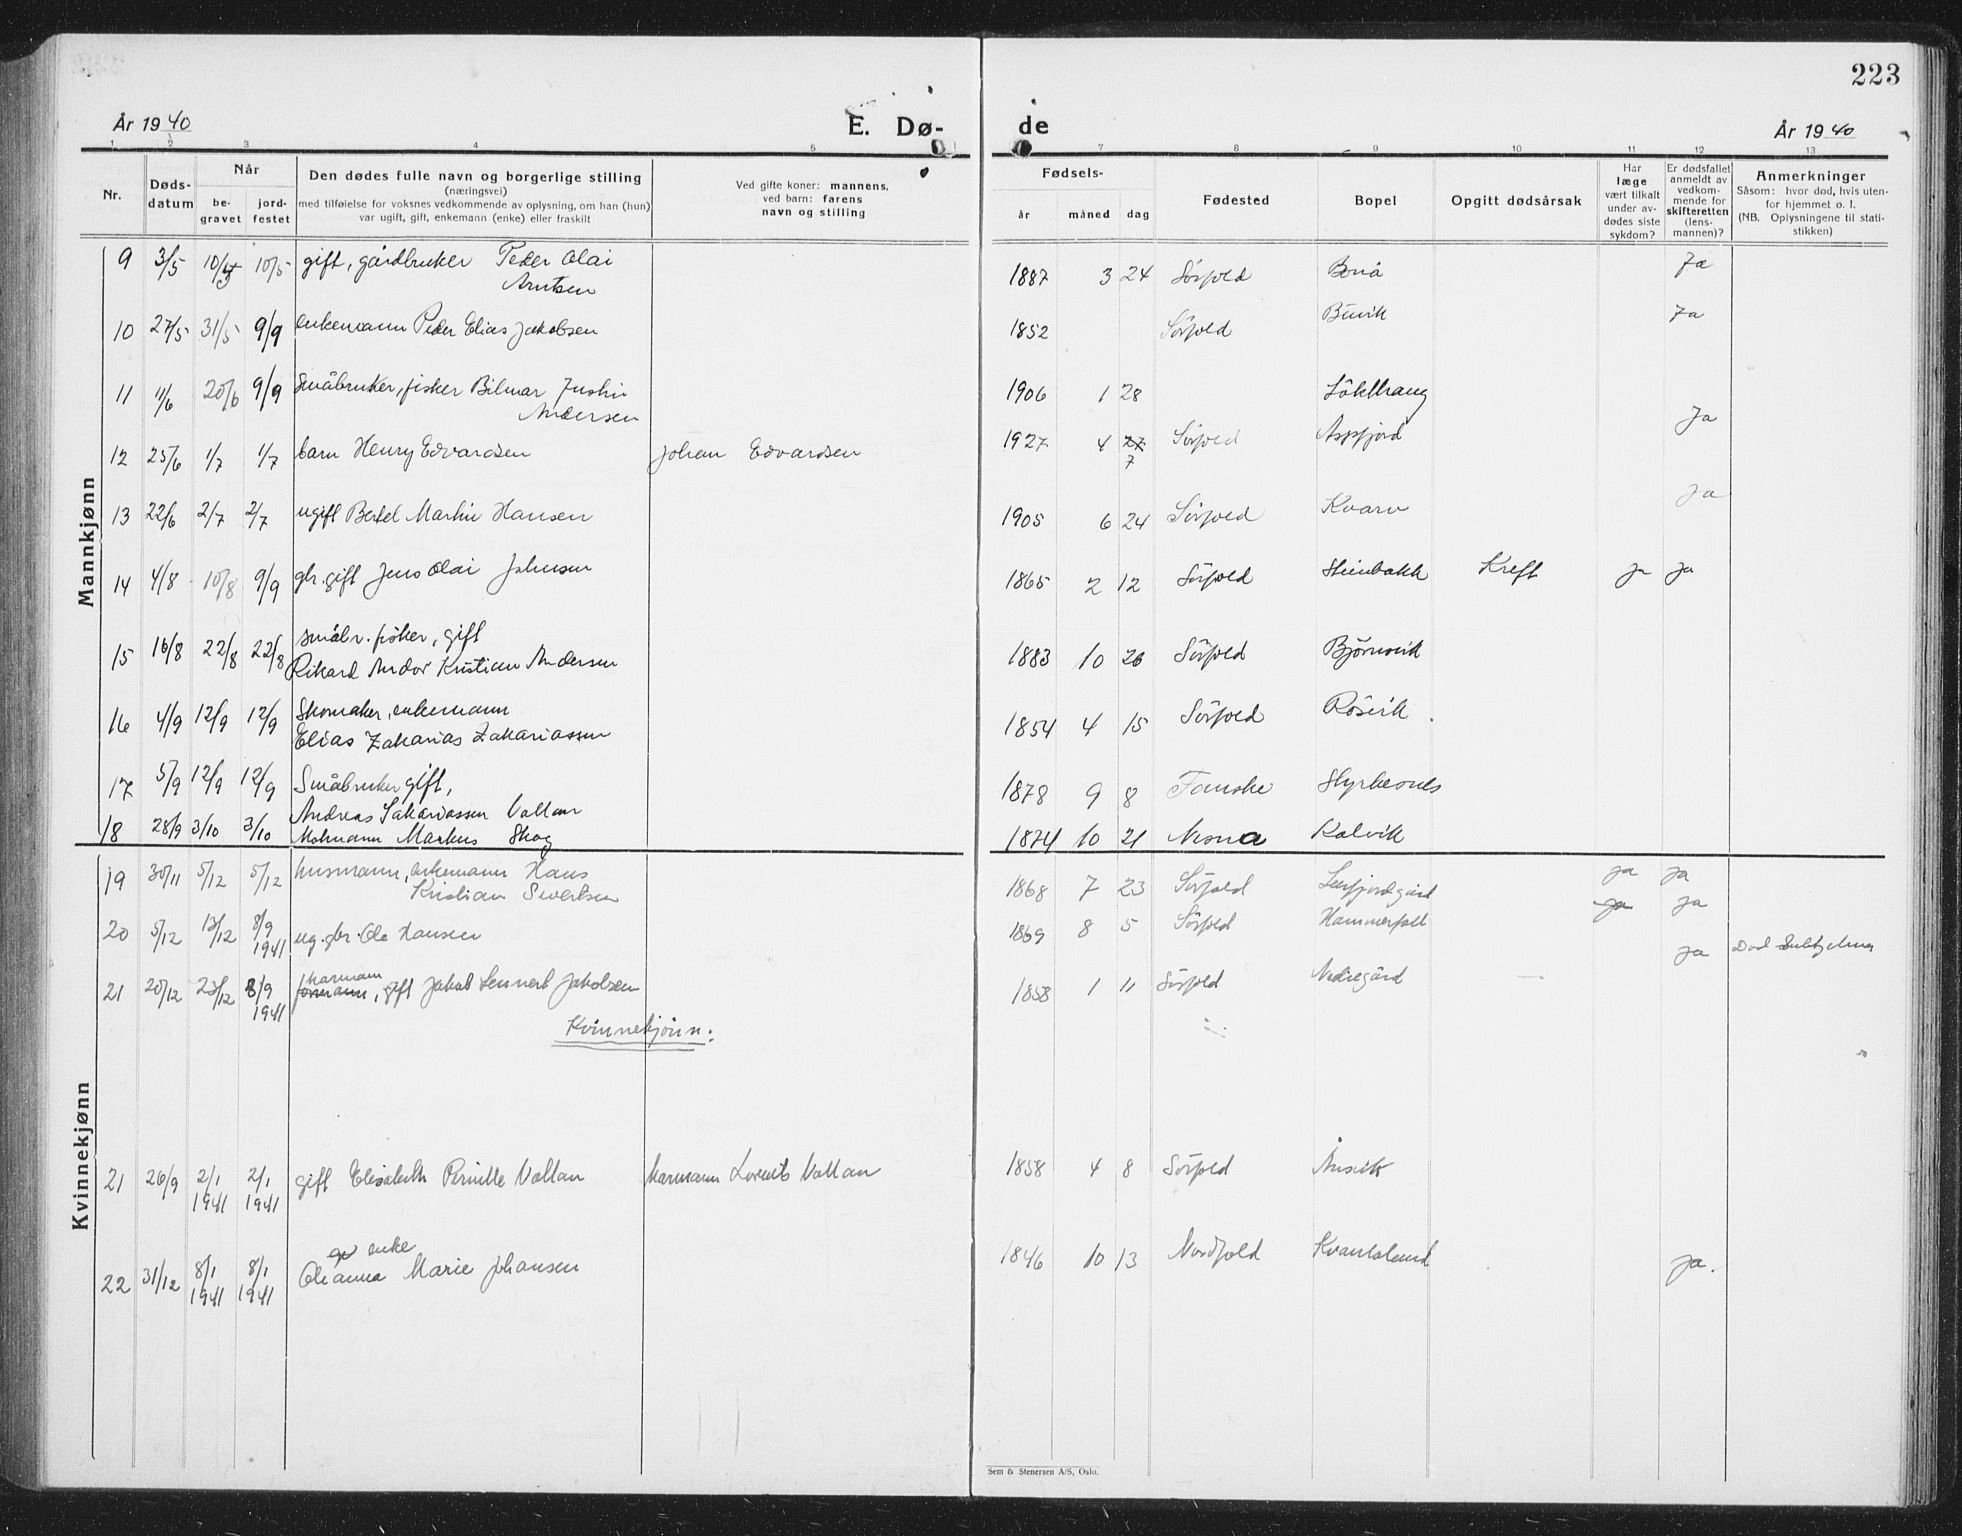 223
År 1940
E. Dø-
de
År 1940
1 2 3 4 5 7 8 9 10 11 12 13
Nr.
Døds-
datum
Når
be-
gravet
jord-
festet
Den dødes fulle navn og borgerlige stilling
(næringsvei)
med tilføielse for voksnes vedkommende av oplysning, om han (hun)
var ugift, gift, enkemann (enke) eller fraskilt
Ved gifte koner: mannens,
ved barn: farens
navn og stilling
Fødsels-
år måned dag
Fødested
Bopel
Opgitt dødsårsak
Har
læge
vært tilkalt
under av-
dødes siste
sykdom?
Er dødsfallet
anmeldt av
vedkom-
mende for
skifteretten
(lens-
mannen)?
Anmerkninger
Såsom: hvor død, hvis uten-
for hjemmet o. l.
(NB. Oplysningene til stati-
stikken)
Mannkjønn
9 3/5 10/5 10/5 gift, gårdbruker Peder Olai
Arntsen
1887 3 24 Sørfold Bonå Ja
10 27/5 31/5 9/9 enkemann Peder Elias Jakobsen
1852 Sørfold Buvik Ja
11 1/6 20/6 9/9 Småbruker, fisker Bilmar Justin
Andersen
1906 1 28 Løkthaug
12 25/6 1/7 1/7 barn Henry Edvardsen Johan Edvardsen
1927 4 27
7 Sørfold Aspfjord Ja
13 22/6 2/7 2/7 ugift Bertel Martin Hansen
1905 6 24 Sørfold Kvarv Ja
14 4/8 10/8 9/9 gbr. gift Jens Olai Johnsen
1865 2 12 Sørfold Steinbakk Kreft ja ja
15 16/8 22/8 22/8 småbr. fisker, gift
Rikard Andor Kristian Andersen
1883 10 26 Sørfold Bjørnvik
16 4/9 12/9 12/9 Skomaker, enkemann
Elias Zakarias Zakariassen
1854 4 15 Sørfold Røsvik
17 5/9 12/9 12/9 Småbruker gift,
Andreas Sakariassen Valtan
1878 9 8 Fauske Styrkesnes
18 28/9 3/10 3/10 Markus Skog
1874 10 21 Nesna Kalvik
19 30/11 5/12 5/12 husmann, enkemann Hans
Kristian Sivertsen
1868 7 23 Sørfold ja ja
20 5/12 13/12 8/9
1941 ug. gbr. Ole Hansen
1869 8 5 Sørfold Hammerfall ja ja
21 20/12 23/12 8/9
1941 kårmann
, gift Jakob Lennert Jakobsen
1858 1 11 Sørfold Nedregård ja Død Sulitjelma
Kvinnekjønn:
Kvinnekjønn
21 26/9 2/1
1941 2/1
1941 gift Elisabeth Pernille Valtan kårmann Lorents Valtan
1858 4 8 Sørfold Ånsvik
22 31/12 8/1
1941 8/1
1941 enke
Oleanna Marie Johansen
1846 10 13 Nordfold Kvantoland ja.
Sem & Stenersen A/S, Oslo.